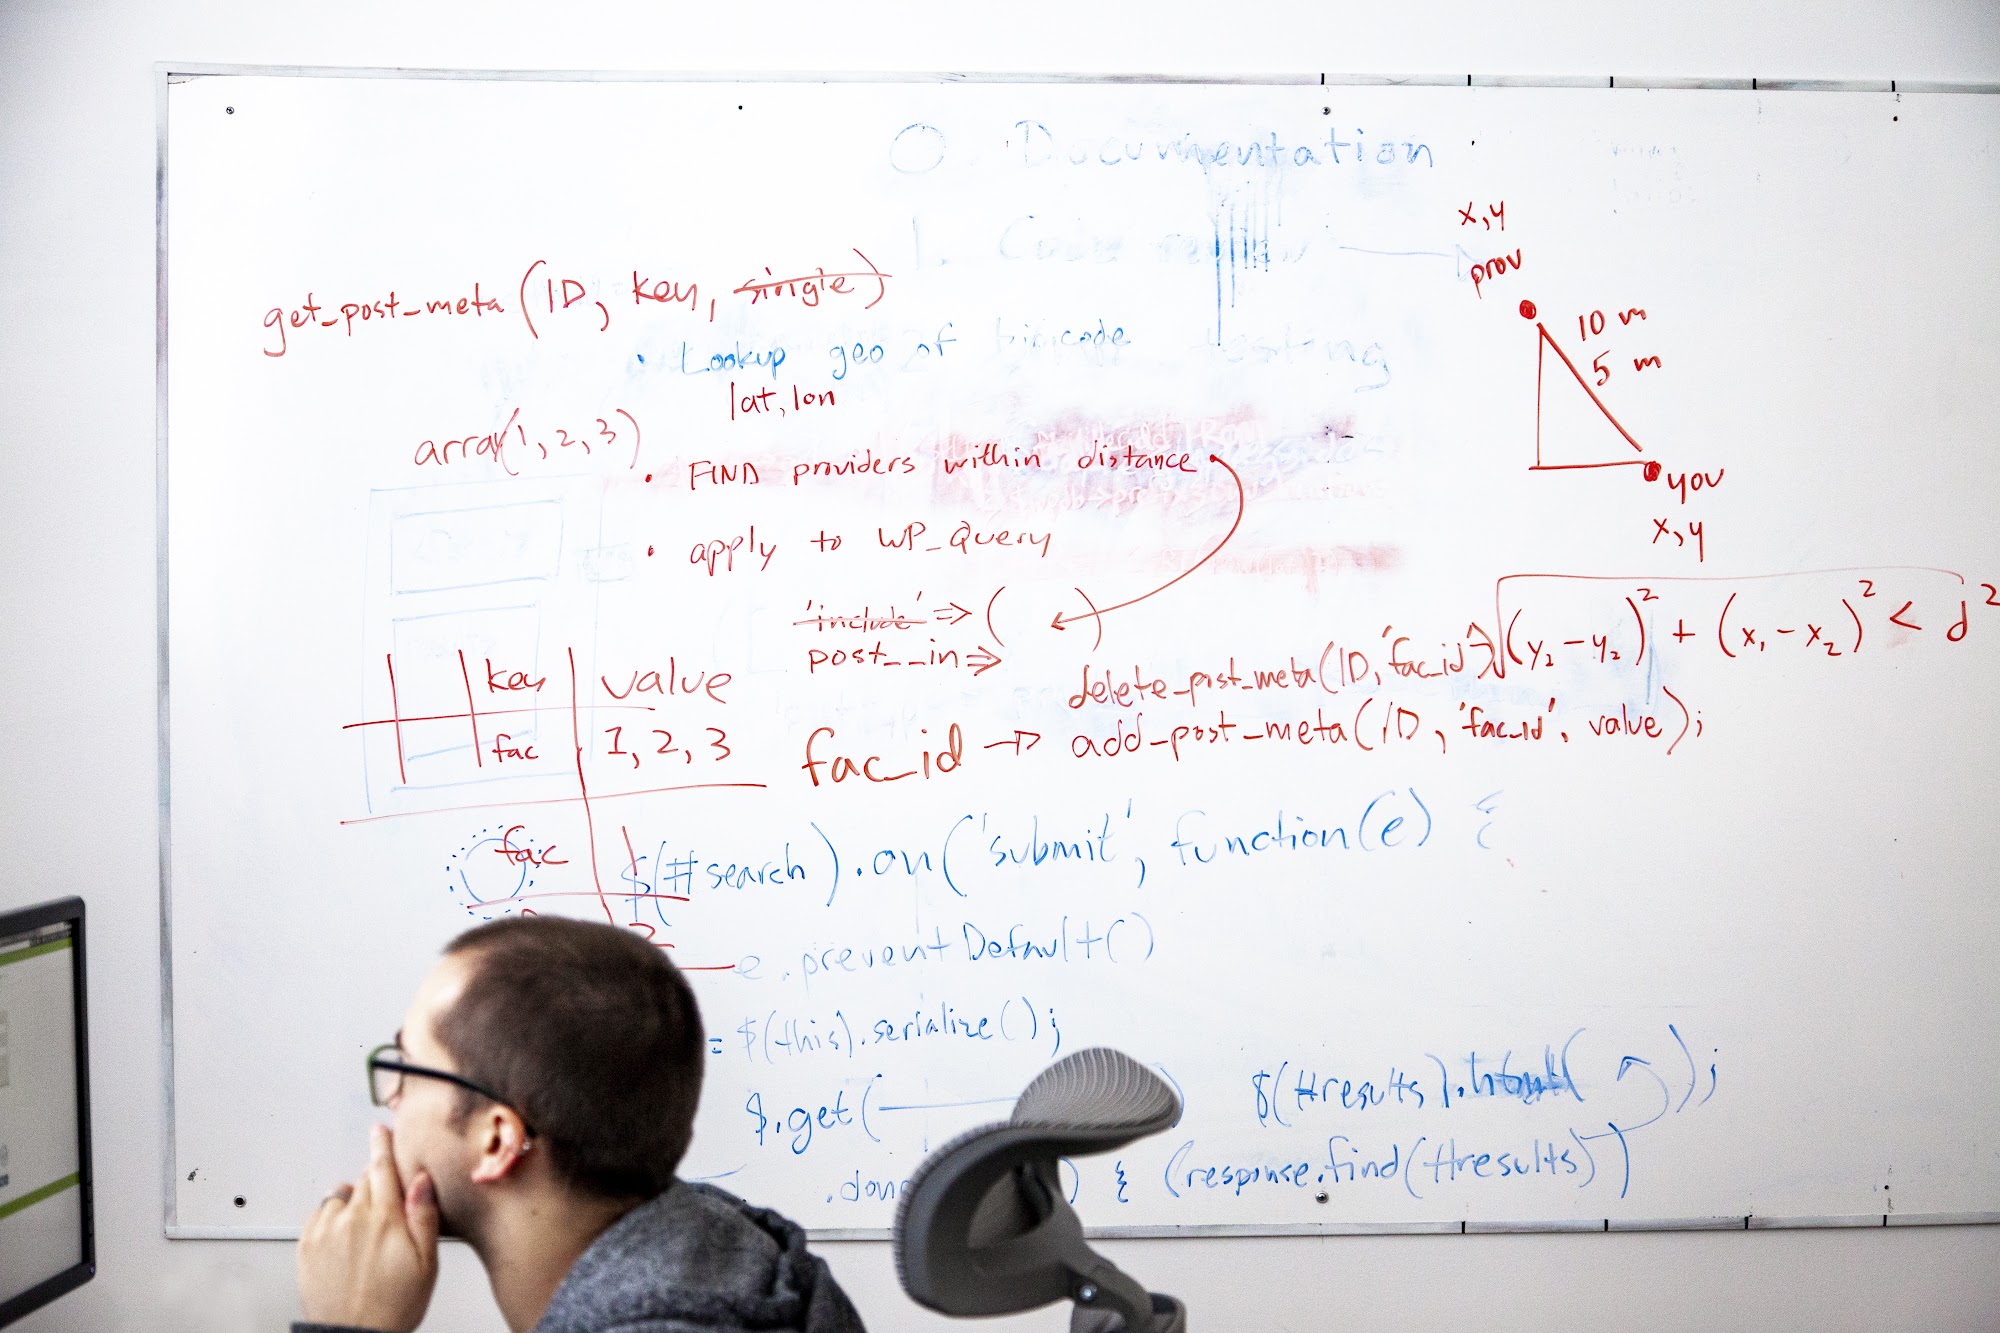 O. Documentation
1. Code review
x,y
prov
get_post_meta(ID, key, single)
10 m
5 m
• Lookup geo of
testing
lat, lon
array(1, 2, 3)
• FIND providers within distance
you
x,y
• apply to WP_Query
'include' => ( )
post__in =>
√(y₂ - y₂)² + (x₁ - x₂)² < d²
delete_post_meta(ID, 'fac_id')
key value
fac 1, 2, 3
fac_id → add_post_meta(ID, 'fac_id', value);
fac 1
$(#search).on('submit', function(e) {
2
e.preventDefault()
= $(this).serialize();
$.get(
$(#results).html( );
) { (response.find(#results))